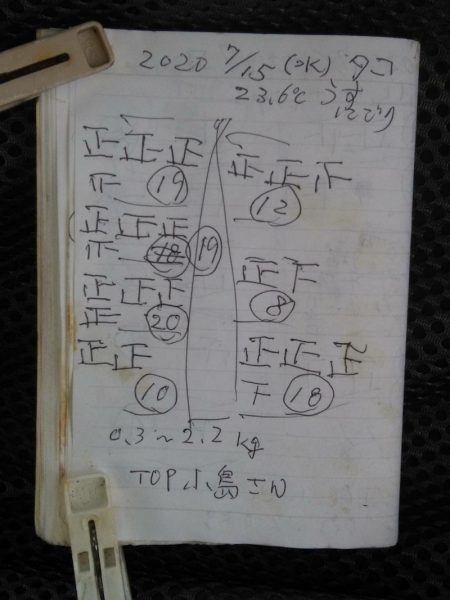 2020 7/15 (水) タコ
23.6℃ うす
にごり
正正正
正
19
正正正
正
18 19
正正正
正
20
正正
10
正正下
12
正下
8
正正正
下
18
0.3~2.2kg
TOP小島さん